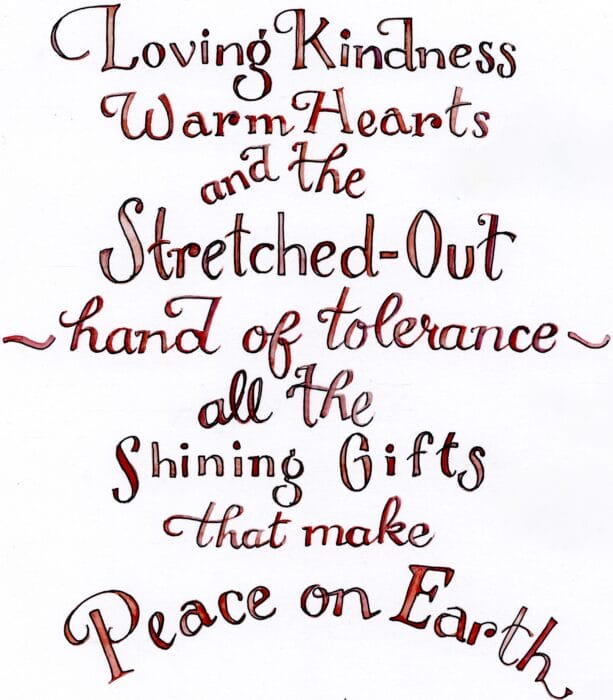 Loving Kindness
Warm Hearts
and the
Stretched-Out
~hand of tolerance~
all the
Shining Gifts
that make
Peace on Earth